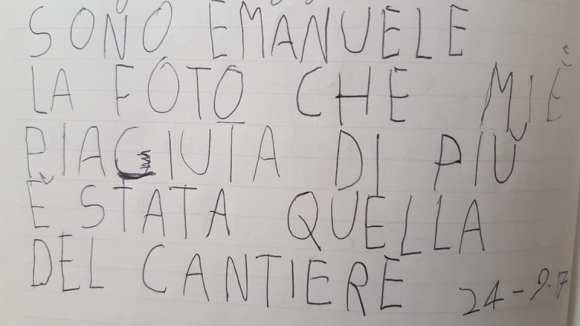 SONO EMANUELE
LA FOTO CHE MIÈ
PIACIUTA DI PIU
È STATA QUELLA
DEL CANTIERE
24-9-7